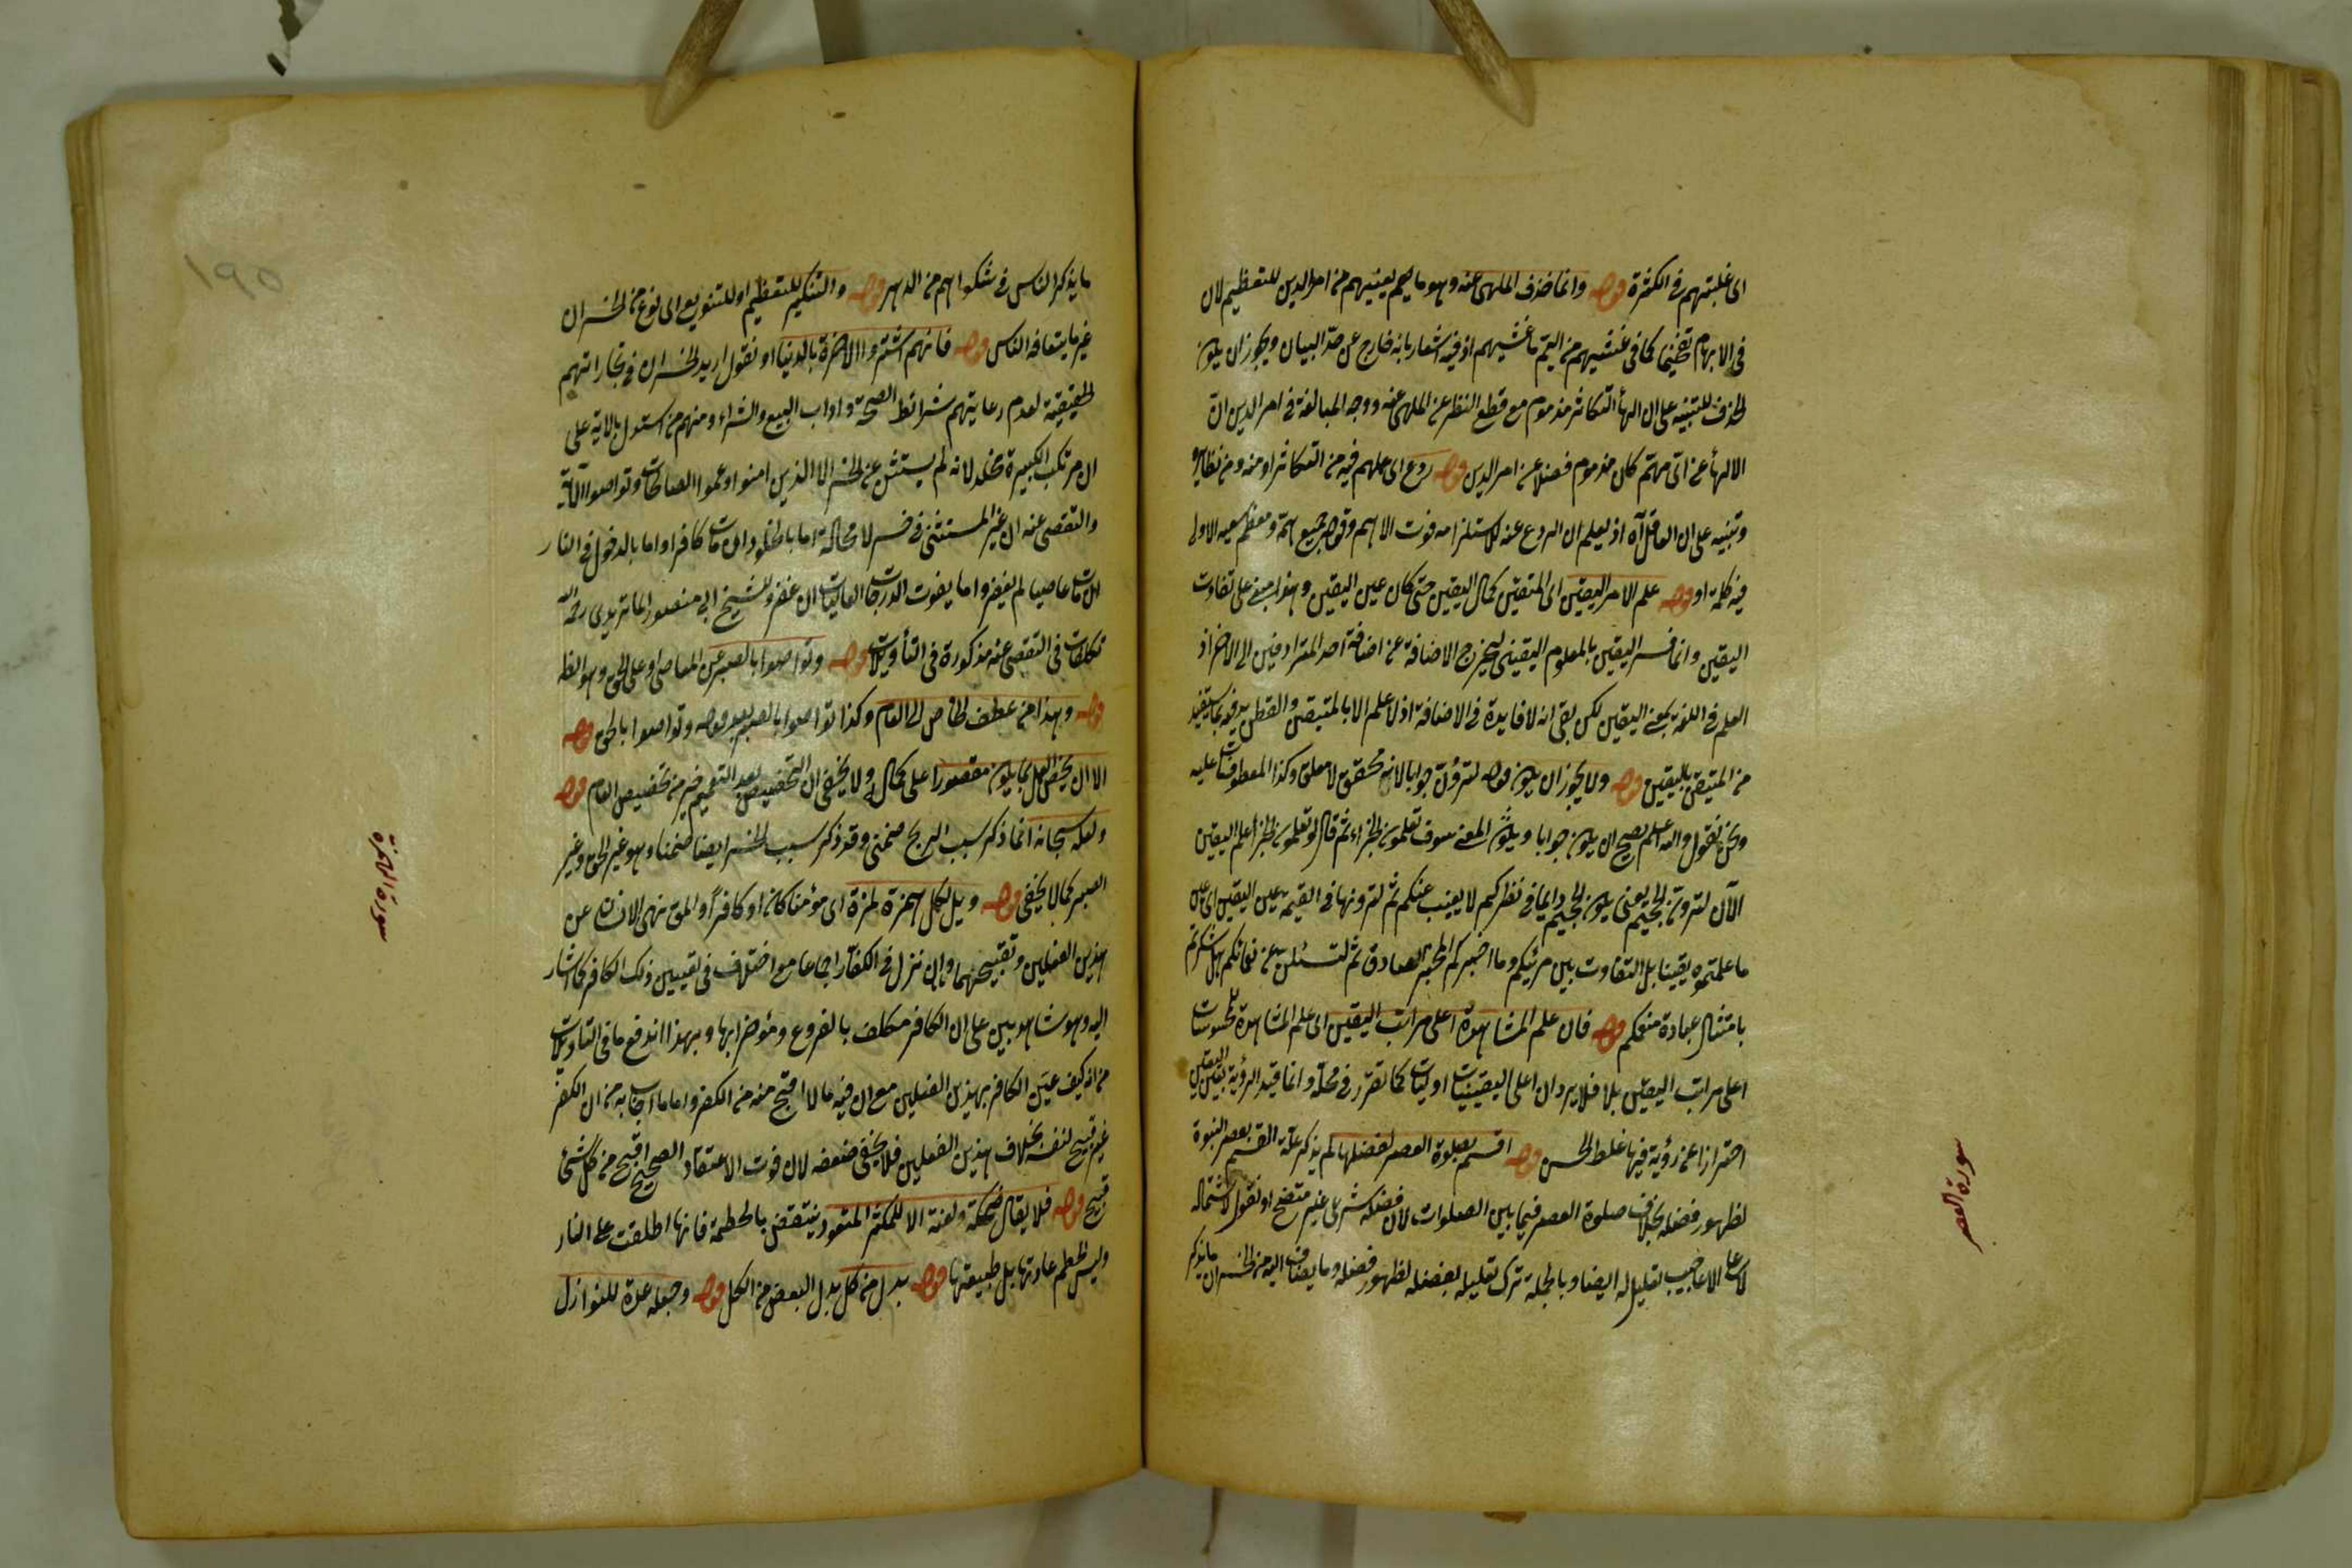 اى غلبتهم فى الكثرة قوله وانما حذف الملهى عنه وهو ما يعنيهم من امر الدين للتعظيم لان
فى الابهام تفخيما كما فى غشيهم من اليم ما غشيهم اذ فيه اشعار بانه خارج عن حد البيان ويجوز ان يكون
الحذف للتنبيه على ان الهاء التكاثر مذموم مع قطع النظر عن الملهى عنه ووجه المبالغة فى امر الدين ان
الالهاء عن اى مهتم كان مذموم فضلا عن امر الدين قوله ردع اى عما هم فيه من التكاثر او منه ومن نظايره
وتنبيه على ان العاقل آه اذ يعلم ان الردع عنه لاستلزامه فوت الاهم وقوله جميع همه ومعظم سعيه الاولى
فيه كلمة او قوله علم الامر اليقين اى المتيقن كمال اليقين حتى كان عين اليقين وهذا مبنى على تفاوت
اليقين وانما فسر اليقين بالمعلوم اليقينى ليخرج الاضافة عن اضافة احد المترادفين الى الاخر اذ
العلم فى اللغة بمعنى اليقين لكن بقى انه لا فايدة فى الاضافة اذ لا علم الا بالمتيقن والفطن يعرفه بما يستفيد
من المتيقن باليقين قوله ولا يجوز ان يكون قوله لترون جوابا لانه محقق لا معلق وكذا المعطوفات عليه
ونحن نقول والله اعلم يصح ان يكون جوابا ويكون المعنى سوف تعلمون الجزاء ثم قال لو تعلمون الجزاء علم اليقين
الآن لترون الجحيم يعنى يكون الجحيم دايما فى نظركم لا يغيب عنكم ثم لترونها فى القيمة عين اليقين اى عين
ما علمتموه يقينا بل التفاوت بين مرئيكم وما اخبركم المخبر الصادق ثم لتسئلن عن نعمائكم هل شكرتم
بامتثال عبادة منعمكم قوله فان علم المشاهدة اعلى مراتب اليقين اى علم المشاهدة للمحسوسات
اعلى مراتب اليقين بلا فلا يرد ان اعلى اليقينيات اوليات كما تقرر فى محله وانما قيد الرؤية بعين اليقين
احترازا عن رؤية فيها غلط الحس قوله اقسم بصلوة العصر لفضلها لم يذكر علة القسم بعصر النبوة
لظهور فضله بخلاف صلوة العصر فيما بين الصلوات لان فضله شرعى غير متضح او نقول لاشتماله
على الاعاجيب تعليل له ايضا وبالجملة ترك تعليله بفضله لظهور فضله وما يضاف اليه من الخسران ما يذكر
سورة العصر
ما يذكر الناس فى شكواهم من الدهر قوله والتنكير للتعظيم او للتنويع اى نوع من الخسران
غير ما يتعارفه الناس قوله فانهم اشتروا الآخرة بالدنيا او نقول اريد الخسران فى تجاراتهم
الحقيقية لعدم رعايتهم شرائط الصحة وآداب البيع والشراء ومنهم من استدل بالآية على
ان مرتكب الكبيرة مخلد لانه لم يستثن عن الخسر الا الذين امنوا وعملوا الصالحات وتواصوا الآية
والتقصى عنه ان غير المستثنى فى خسر لا محالة اما بالخلود ان مات كافرا واما بالدخول فى النار
ان مات عاصيا لم يغفر واما بفوت الدرجات العاليات ان غفر وللشيخ ابى منصور الماتريدى رحمه الله
تكلفات فى التقصى عنه مذكورة فى التأويلات قوله وتواصوا بالصبر عن المعاصى او على الحق وهو الظ
قوله وهذا من عطف الخاص الى العام وكذا تواصوا بالصبر بعد قوله وتواصوا بالحق قوله
الا ان يخص العمل بما يكون مقصورا على كماله ولا يخفى ان التخصيص بعد التعميم خير من تخصيص العام قوله
ولعله سبحانه انما ذكر سبب الربح ضمنى وقد ذكر سبب الخسر ايضا ضمنا وهو غير الحق وغير
الصبر كما لا يخفى قوله ويل لكل همزة لمزة اى مؤمنا كان او كافرا والمق نهى الانسان عن
هذين الفعلين وتقبيحهما وان نزل فى الكفار اجماعا مع اختلاف فى تعيين ذلك الكافر كما اشار
اليه وهو شاهد بين على ان الكافر مكلف بالفروع ومؤاخذ بها وبهذا اندفع ما فى التأويلات
من انه كيف عير الكافر بهذين الفعلين مع ان فيه ما لا اقبح منه من الكفر واما ما اجاب به من ان الكفر
غير قبيح لنفسه بخلاف هذين الفعلين فلا يخفى ضعفه لان فوت الاعتقاد الصحيح اقبح من كل شئ
قبيح قوله فلا يقال ضحكة ولعنة الا للمكثر المتعود ينتقض بالحطمة فانها اطلقت على النار
وليس الحطم عادتها بل طبيعتها قوله بدل من كل بدل البعض من الكل قوله وجعله عدة للنوازل
سورة الهمزة
١٩٥